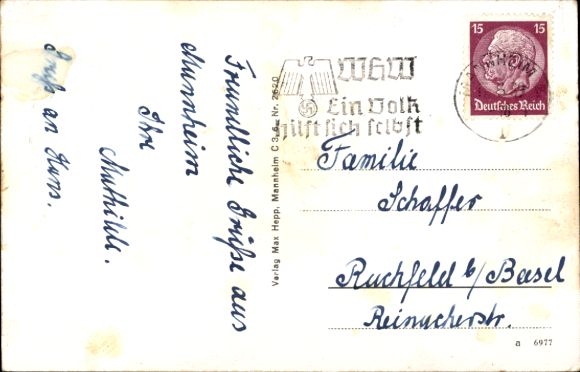 Freundliche Grüße aus
Mannheim
Ihre
Mathilde.
Gruß an Hans.
Verlag Max Hepp, Mannheim C 3, 6. Nr. 2620
WHW
Ein Volk
hilft sich selbst
MANNHEIM
15 15
Deutsches Reich
Familie
Schaffer
Ruchfeld b/Basel
Reinacherstr.
a 6977